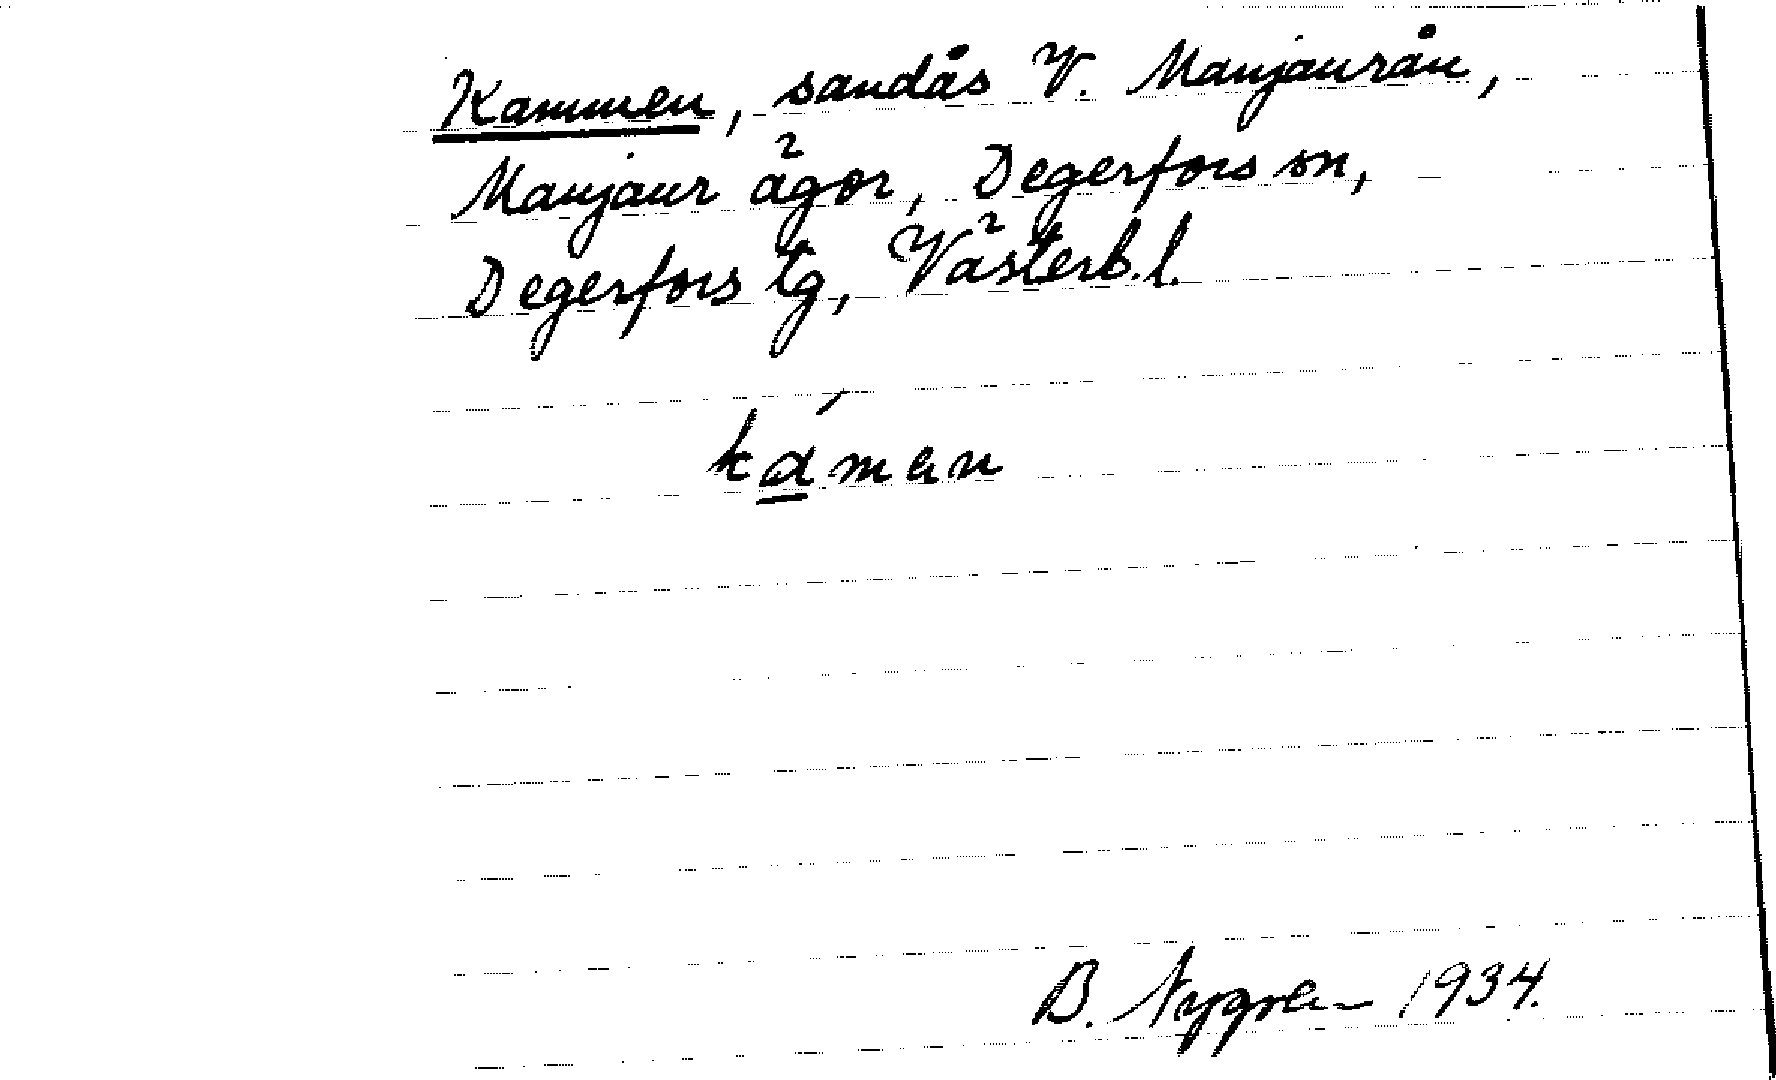 Kammen, sandås V. Manjaurån,
Manjaur ägor, Degerfors sn,
Degerfors tg, Västerb. l.
káman
B. Nygren 1934.